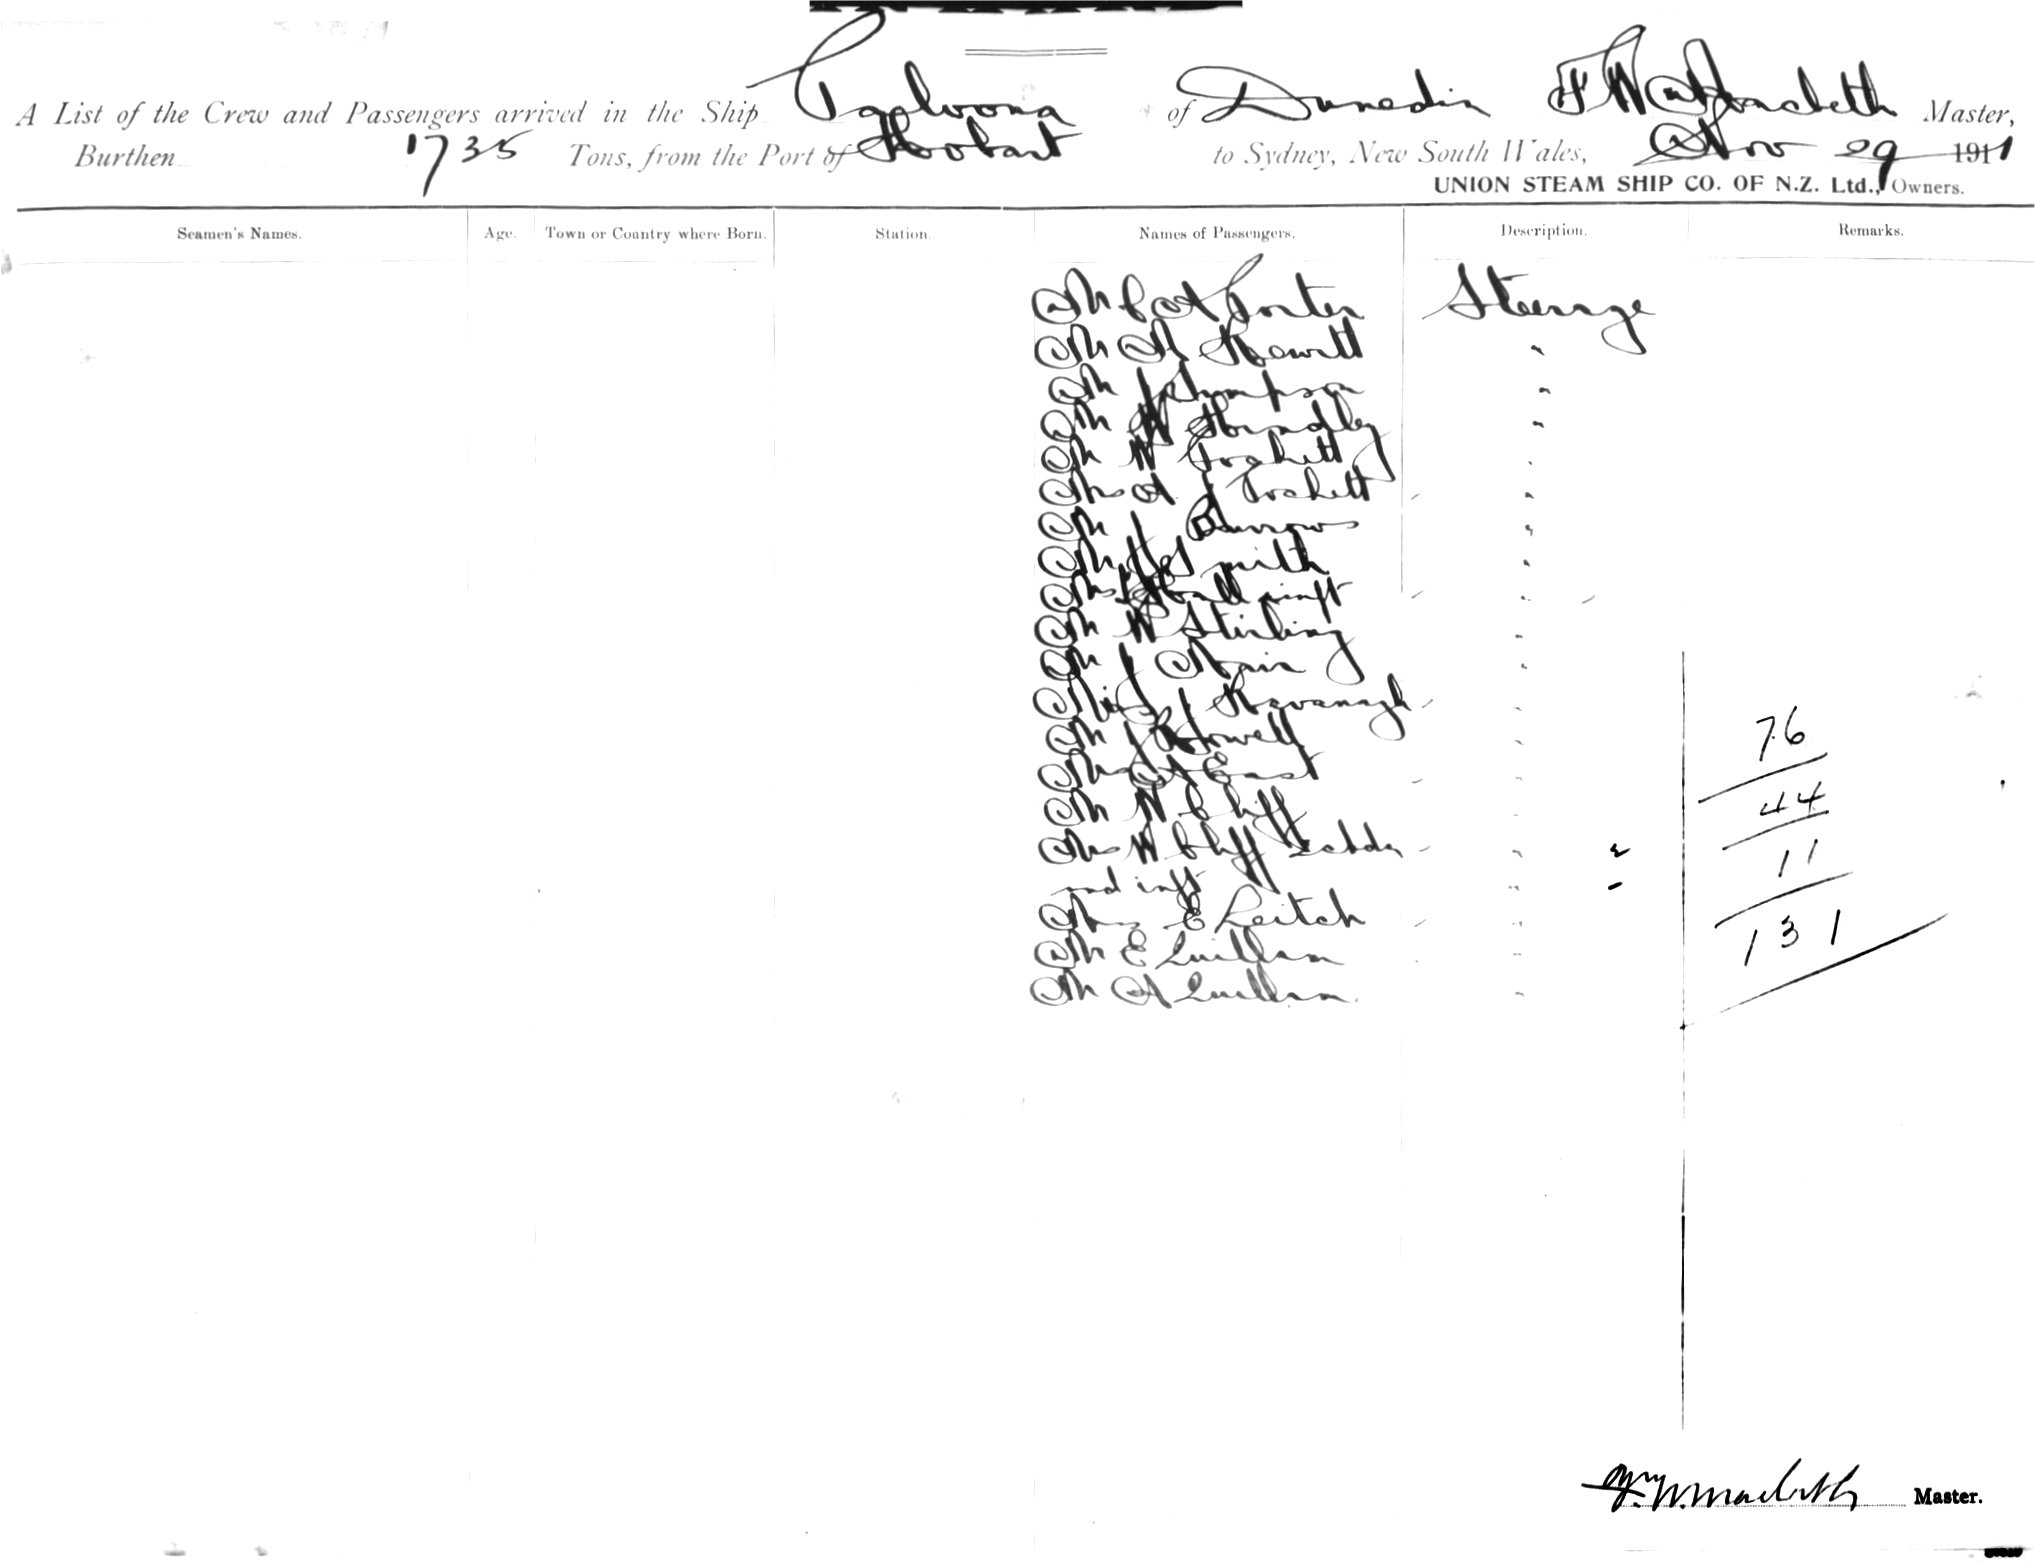 A List of the Crew and Passengers arrived in the Ship Paloona of Dunedin F W Macbeth Master,
Burthen 1735 Tons, from the Port of Hobart to Sydney, New South Wales, Nov 29 1911
UNION STEAM SHIP CO. OF N.Z. Ltd., Owners.
Seamen's Names. Age. Town or Country where Born. Station. Names of Passengers. Description. Remarks.
Mr C A Porter Steerage
Mr A Hewitt "
Mr J Thompson "
Mr W Handley "
Mr W Trchett "
Mrs A J Trchett "
Mr J Burrows "
Mr Smith "
Mrs Hall inft "
Mr W Stirling "
Mr J Nair "
Miss J Kavanagh "
Mr J Howell "
76
Mrs A East "
Mr W Cliff
44
Mrs W Cliff "
11
and inft "
Mrs E Leitch "
131
Mr E Quillan "
Mr A Quillan "
F. W. Macbeth Master.